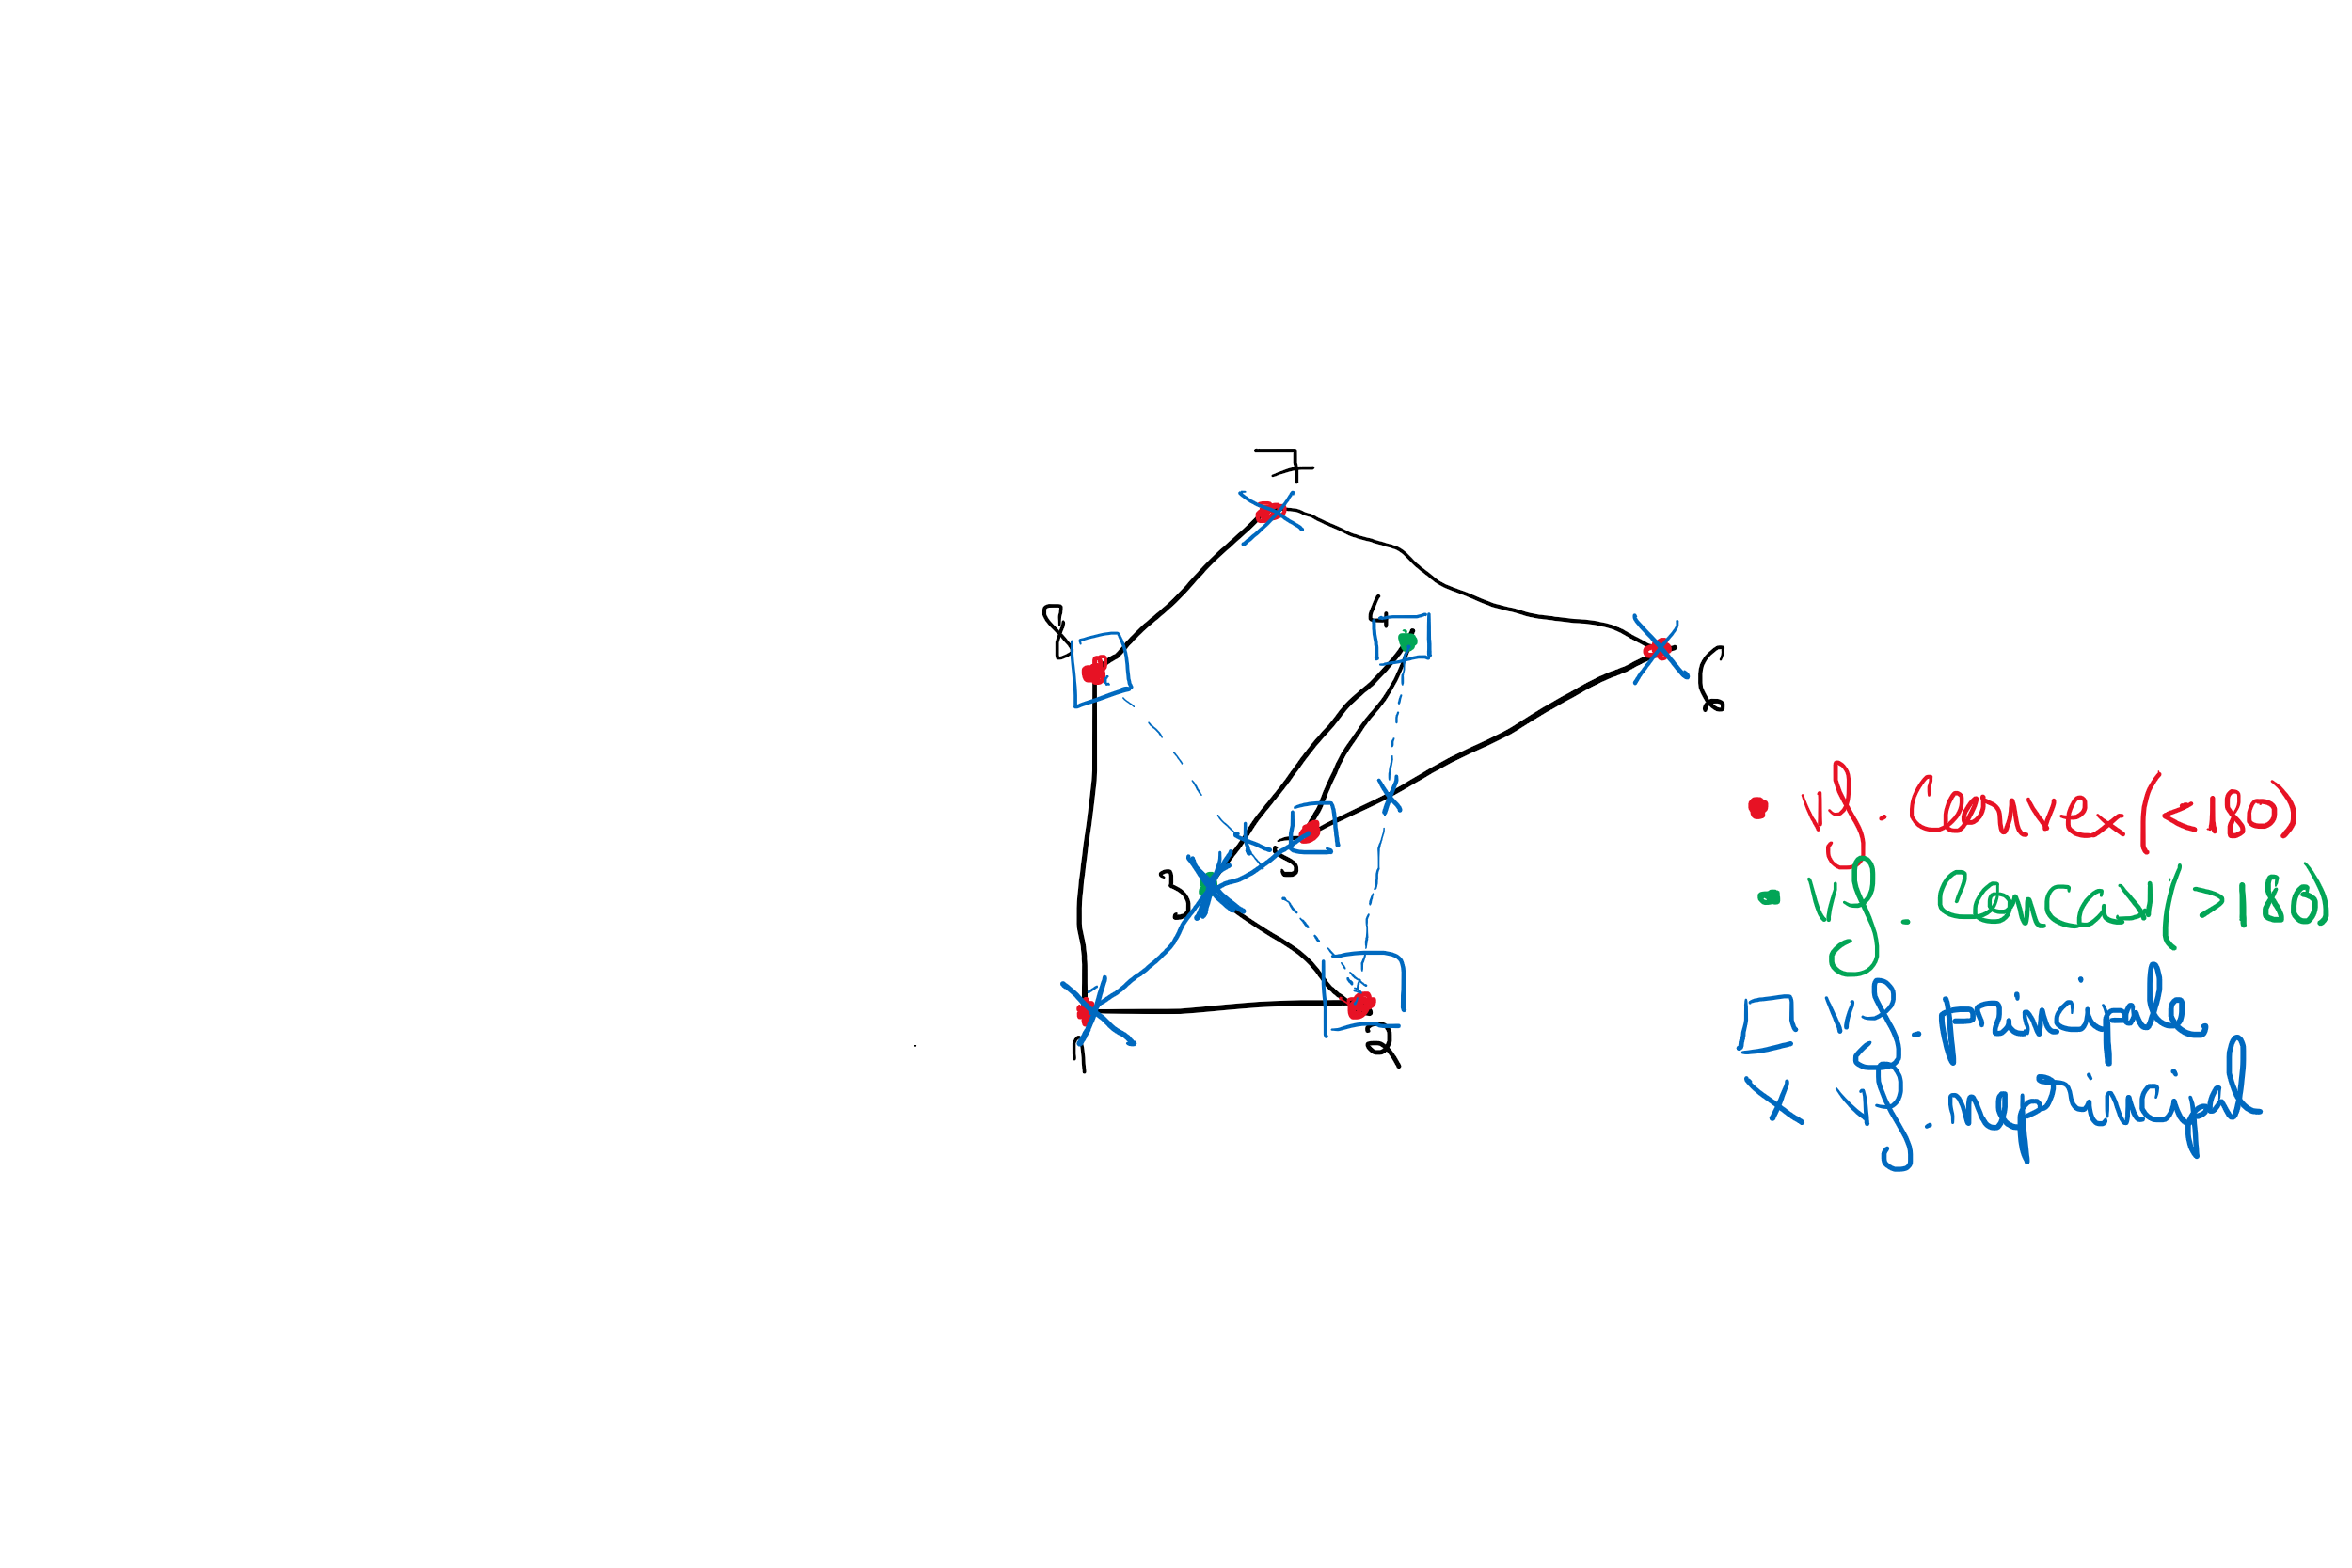 7
8
4
6
5
3
1
2
vf. Convex(<180)
vf. Concav(>180)
vf. principale
vf. neprincipal